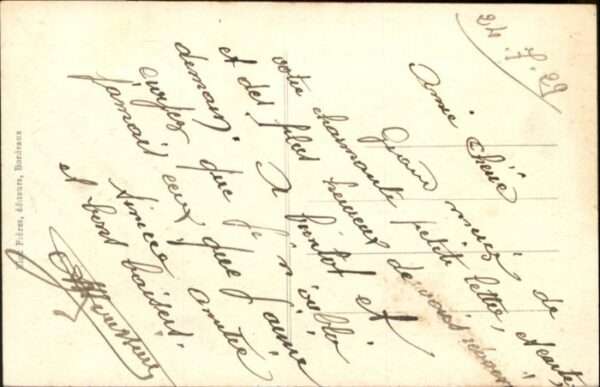 24.7.29
Amie chérie
Grand merci de
votre charmante petite lettre, et carte,
et des plus heureux de vous revoir
demain. A bientôt et
que je n'oublie
jamais ceux que j'aime
Sincère amitié
et bons baisers.
Frères, éditeurs, Bordeaux